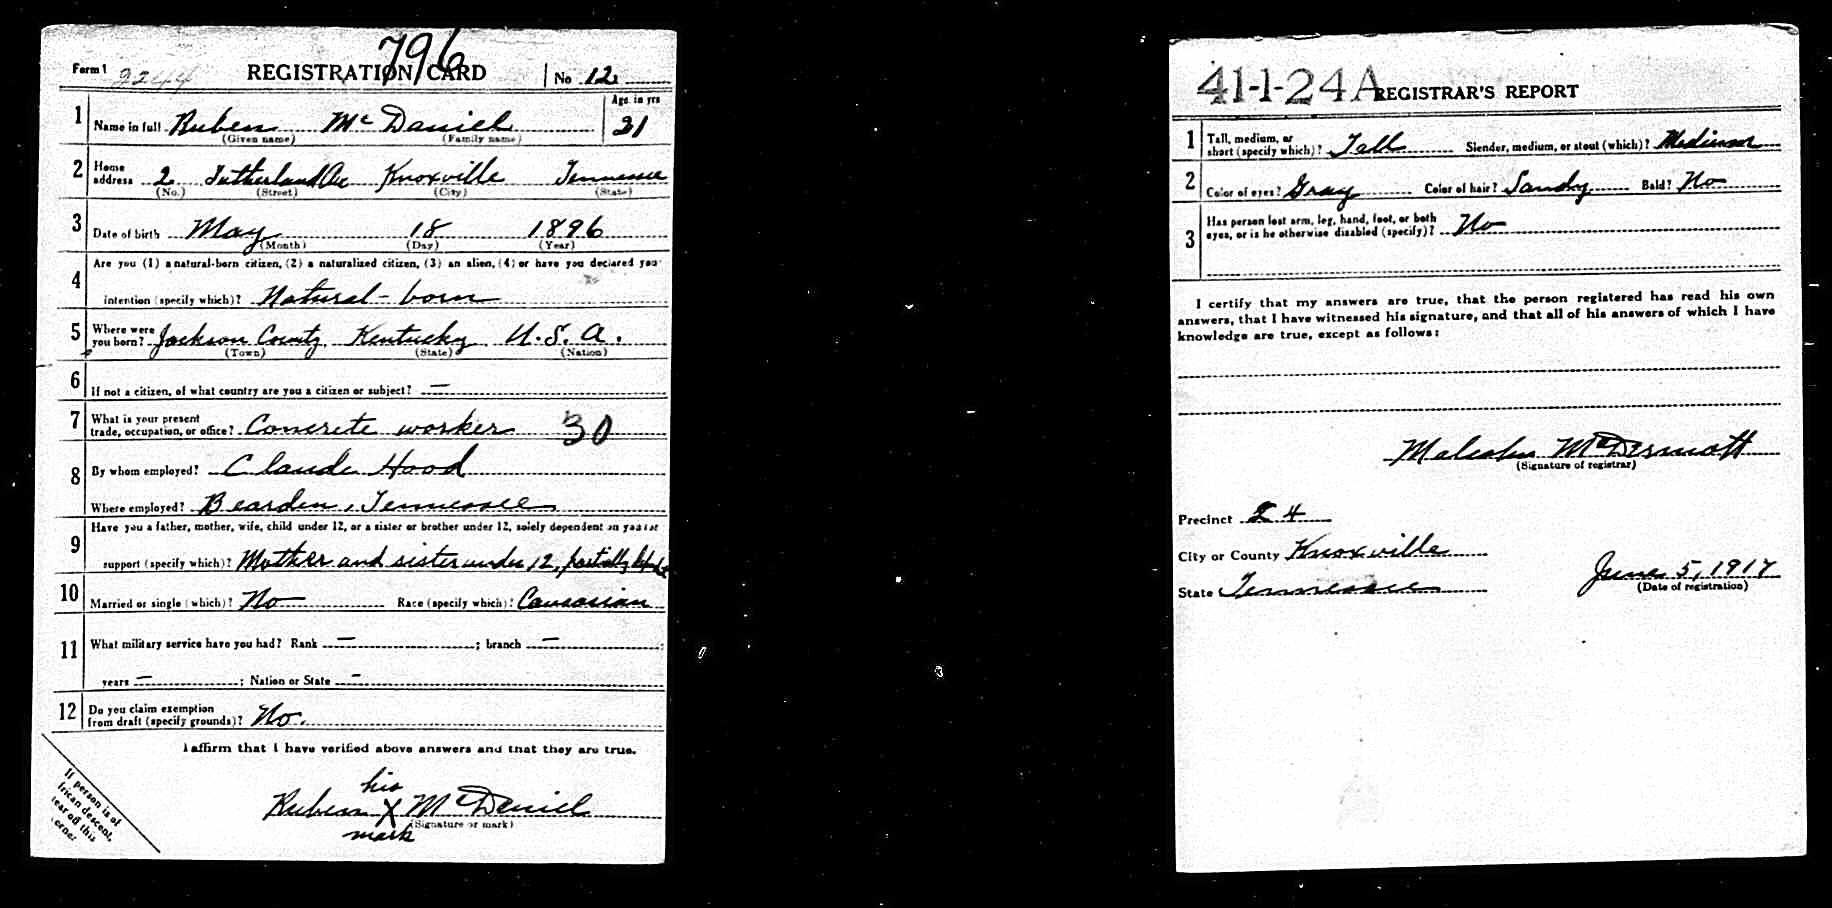 796
Form 1 2244 REGISTRATION CARD No 12
1 Name in full Ruben McDaniel Age, in yrs 21
(Given name) (Family name)
2 Home address 2 Sutherland Av Knoxville Tennessee
(No.) (Street) (City) (State)
3 Date of birth May 18 1896
(Month) (Day) (Year)
4 Are you (1) a natural-born citizen, (2) a naturalized citizen, (3) an alien, (4) or have you declared your
intention (specify which)? Natural-born
5 Where were you born? Jackson County Kentucky U.S.A.
(Town) (State) (Nation)
6 If not a citizen, of what country are you a citizen or subject? —
7 What is your present
trade, occupation, or office? Concrete worker 30
8 By whom employed? Claude Hood
Where employed? Bearden, Tennessee
9 Have you a father, mother, wife, child under 12, or a sister or brother under 12, solely dependent on you for
support (specify which)? Mother and sister under 12, partially
10 Married or single (which)? No Race (specify which)? Caucasian
11 What military service have you had? Rank — ; branch —
years — ; Nation or State —
12 Do you claim exemption
from draft (specify grounds)? No.
I affirm that I have verified above answers and that they are true.
his
Ruben X McDaniel
(Signature or mark)
mark
If person is of
African descent,
tear off this
corner
41-1-24A REGISTRAR'S REPORT
1 Tall, medium, or
short (specify which)? Tall Slender, medium, or stout (which)? Medium
2 Color of eyes? Gray Color of hair? Sandy Bald? No
3 Has person lost arm, leg, hand, foot, or both
eyes, or is he otherwise disabled (specify)? No
I certify that my answers are true, that the person registered has read his own
answers, that I have witnessed his signature, and that all of his answers of which I have
knowledge are true, except as follows:
Malcolm McDermott
(Signature of registrar)
Precinct 24
City or County Knoxville
State Tennessee June 5, 1917
(Date of registration)